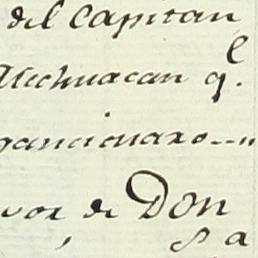 del Capitan
Mechuacan q.e
gancionaro...
vor de Don
s a